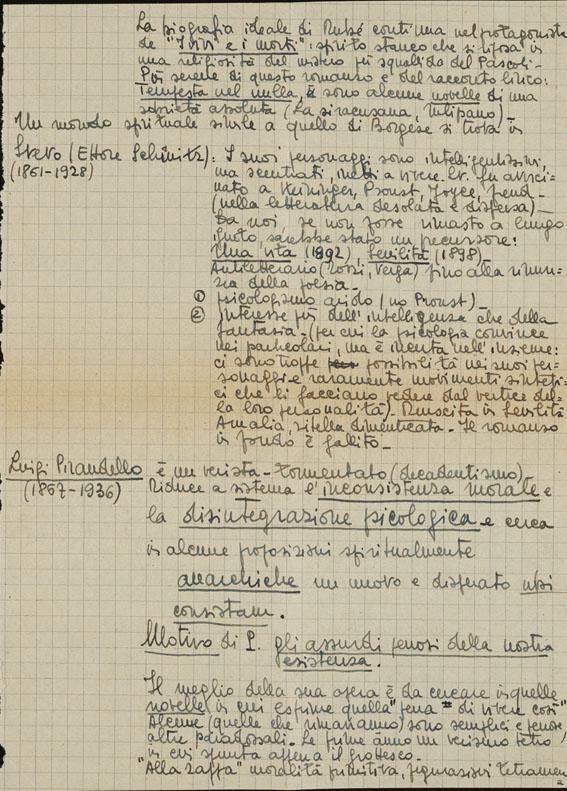 La biografia ideale di Rubé continua nel protagonista
de "I vivi e i morti": spirito stanco che si riposa in
una religiosità del mistero più squallida del Pascoli-
Più serene di questo romanzo e del racconto lirico:
Tempesta nel nulla, sono alcune novelle di una
sobrietà assoluta (La siracusana, Tulipano)-
Un mondo spirituale simile a quello di Borgese si trova in
Svevo (Ettore Schmitz): I suoi personaggi sono intelligentissimi,
(1861-1928)
ma sventrati, inetti a vivere. Sv. fu avvici=
nato a Weininger, Proust, Joyce, Freud-
(nella letteratura desolata e dispersa)-
Da noi, se non fosse rimasto a lungo
ignoto, sarebbe stato un precursore:
Una vita (1892), Senilità (1898)-
Antiletterario (Tozzi, Verga) fino alla rinun=
zia della poesia-
① psicologismo arido (no Proust)-
② interesse più dell'intelligenza che della
fantasia-(per cui la psicologia convince
nei particolari, ma è inerta nell'insieme:
ci sono troppe possibilità nei suoi per=
sonaggi e raramente movimenti sinteti=
ci che li facciano vedere dal vertice del=
la loro personalità)- Riuscita in Senilità
Amalia, zitella dimenticata- Il romanzo
in fondo è fallito-
Luigi Pirandello è un verista-tormentato (decadentismo)-
(1867-1936)
Riduce a sistema l'inconsistenza morale e
la disintegrazione psicologica e cerca
in alcune proposizioni spiritualmente
anarchiche un nuovo e disperato ubi
consistam.
Motivo di P. gli assurdi penosi della nostra
esistenza.
Il meglio della sua opera è da cercare in quelle
novelle in cui esprime quella "pena di vivere così"
Alcune (quelle che rimarranno) sono semplici e penose,
altre paradossali- Le prime hanno un verismo tetro
in cui spunta appena il grottesco.
"Alla zappa" moralità primitiva, figurazioni tetramen
=